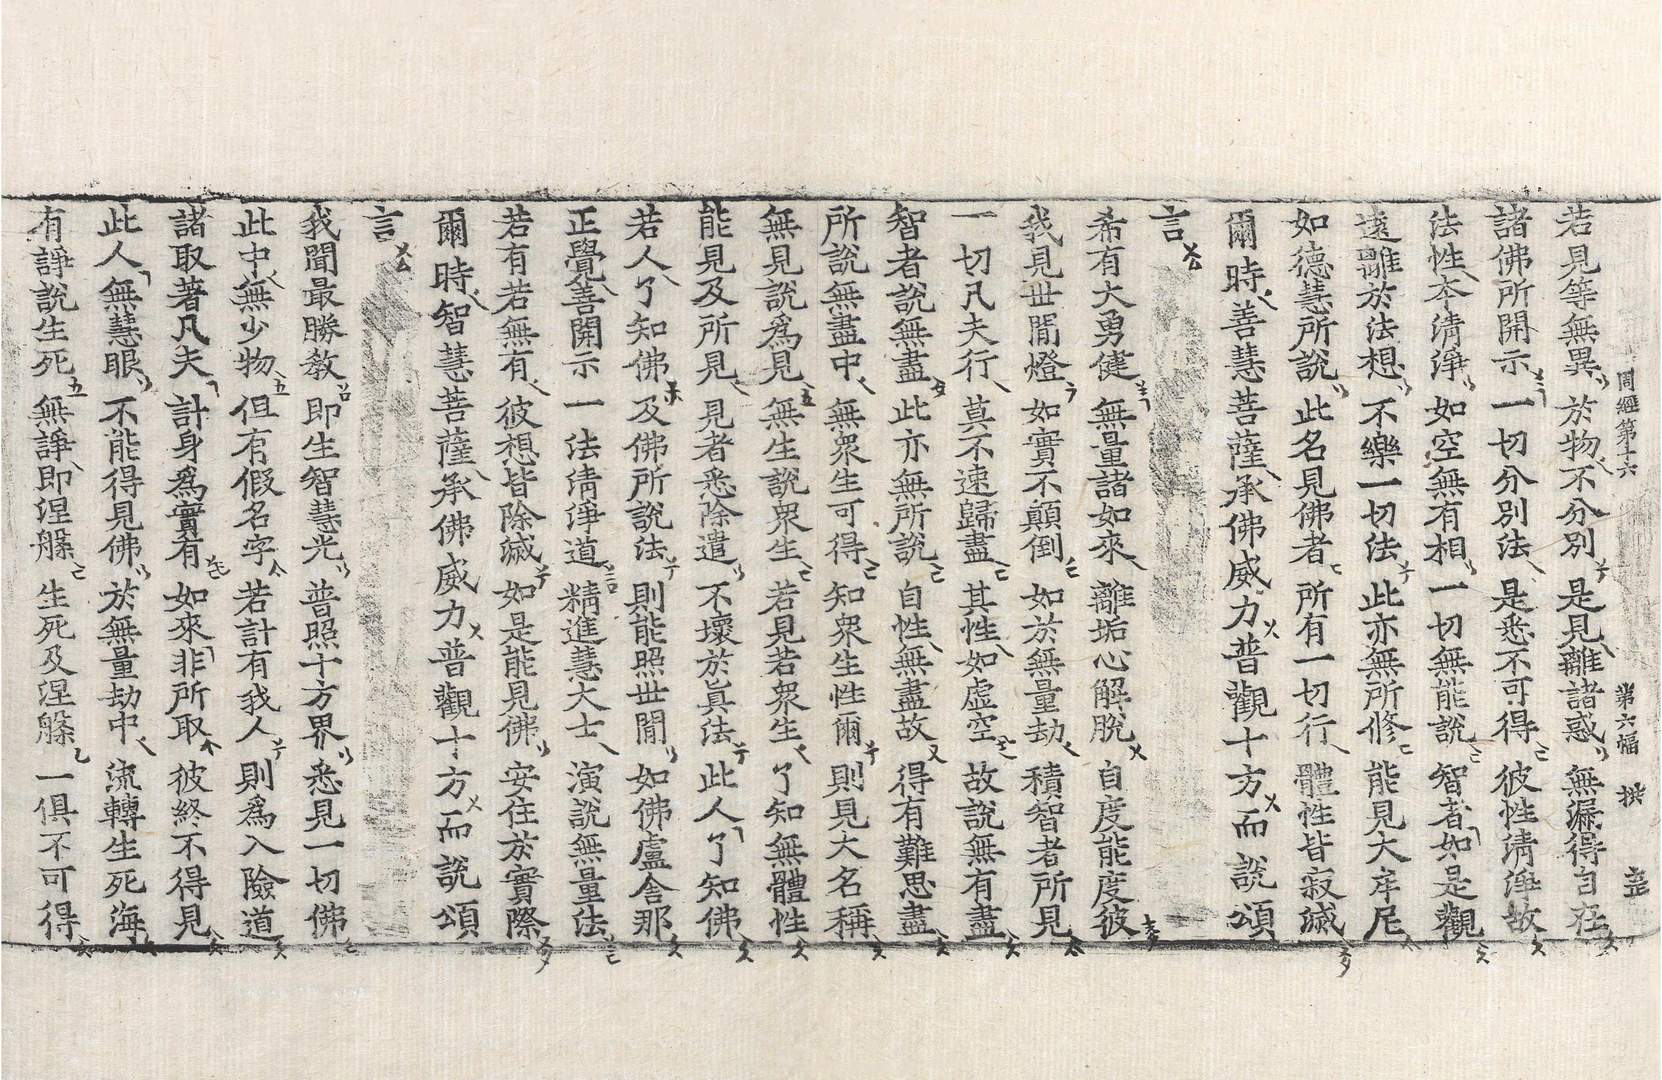 周經第十六 第六幅
若見等無異 於物不分別 是見離諸惑 無漏得自在
諸佛所開示 一切分別法 是悉不可得 彼性清淨故
法性本清淨 如空無有相 一切無能說 智者如是觀
遠離於法想 不樂一切法 此亦無所修 能見大牟尼
如德慧所說 此名見佛者 所有一切行 體性皆寂滅
爾時善慧菩薩承佛威力普觀十方而說頌
言
希有大勇健 無量諸如來 離垢心解脫 自度能度彼
我見世間燈 如實不顛倒 如於無量劫 積智者所見
一切凡夫行 莫不速歸盡 其性如虛空 故說無有盡
智者說無盡 此亦無所說 自性無盡故 得有難思盡
所說無盡中 無眾生可得 知眾生性爾 則見大名稱
無見說為見 無生說眾生 若見若眾生 了知無體性
能見及所見 見者悉除遣 不壞於眞法 此人了知佛
若人了知佛 及佛所說法 則能照世間 如佛盧舍那
正覺善開示 一法清淨道 精進慧大士 演說無量法
若有若無有 彼想皆除滅 如是能見佛 安住於實際
爾時智慧菩薩承佛威力普觀十方而說頌
言
我聞最勝教 即生智慧光 普照十方界 悉見一切佛
此中無少物 但有假名字 若計有我人 則為入險道
諸取著凡夫 計身為實有 如來非所取 彼終不得見
此人無慧眼 不能得見佛 於無量劫中 流轉生死海
有諍說生死 無諍即涅槃 生死及涅槃 一俱不可得